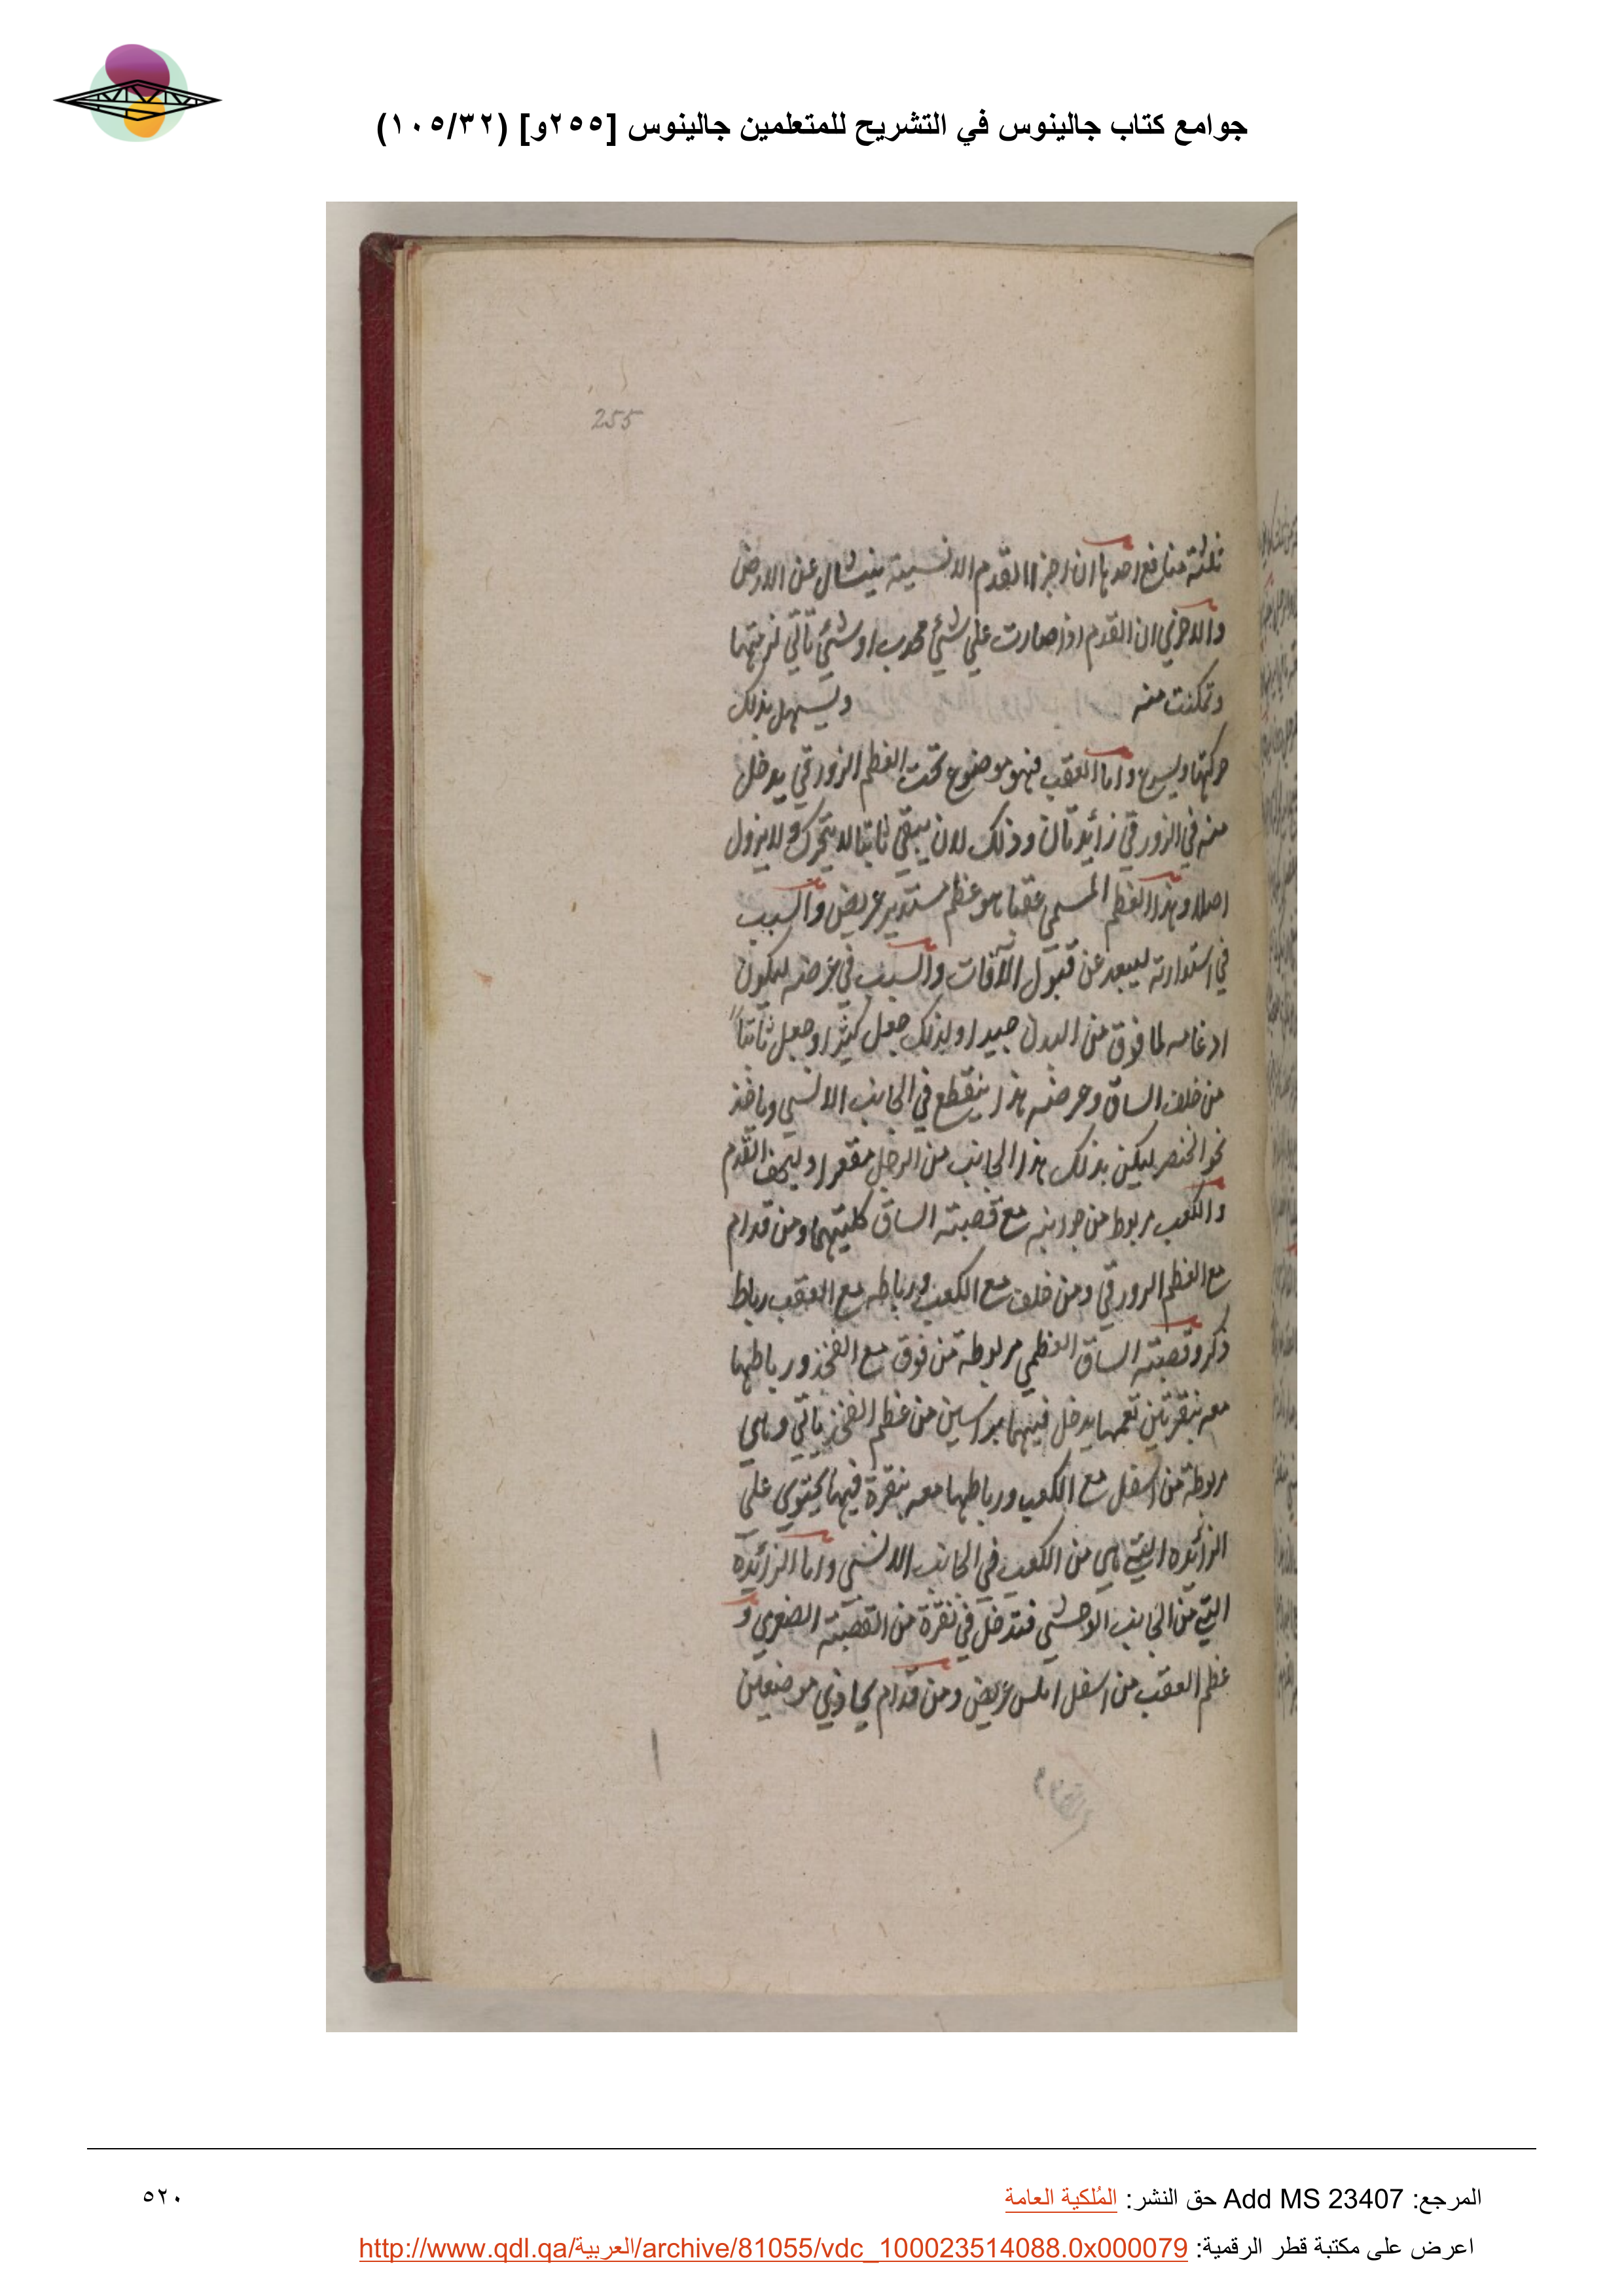 جوامع كتاب جالينوس في التشريح للمتعلمين جالينوس [٢٥٥و] (١٠٥/٣٢)
255
ثلثة منافع احدها ان اجزا القدم الانسية ينشال عن الارض
والاخرى ان القدم اذا صارت على شئ محدب او شئ ناتي
وتمكنت منه ويسهل بذلك
حركتها ويسرع واما العقب فهو موضوع تحت العظم الزورقي يدخل
منه في الزورقي زائدتان وذلك لان يبقي ثابتا لا يتحرك ولا يزول
اصلا وهذا العظم المسمى عقبا هو عظم مستدير عريض والسبب
في استدارته ليبعد عن قبول الافات والسبب في عرضه ليكون
ادغامه لما فوق من البدن جيدا ولذلك جعل كثيرا وجعل ثابتا
من خلف الساق وعرضه هذا ينقطع في الجانب الانسي وياخذ
نحو الخنصر ليكن بذلك هذا الجانب من الرجل مقعرا وليخف القدم
والكعب مربوط من جوانبه مع قصبته الساق كلتيهما ومن قدام
مع العظم الزورقي ومن خلف مع الكعب ورباطه مع العقب رباط
ذكر وقصبته الساق العظمي مربوطه من فوق مع الفخذ ورباطها
معه بنقرتين يدخل فيهما براسين من عظم الفخذ ناتي وهي
مربوطة من اسفل مع الكعب ورباطها معه بنقرة فيها يحتوي على
الزائده التي هي من الكعب في الجانب الانسي واما الزائده
التي من الجانب الاوحشي فتدخل في نقرة من القصبته الصغري و
عظم العقب من اسفل املس عريض ومن قدام يحاوذي موضعين
المرجع: Add MS 23407 حق النشر: المُلكية العامة
٥٢٠
اعرض على مكتبة قطر الرقمية: http://www.qdl.qa/العربية/archive/81055/vdc_100023514088.0x000079